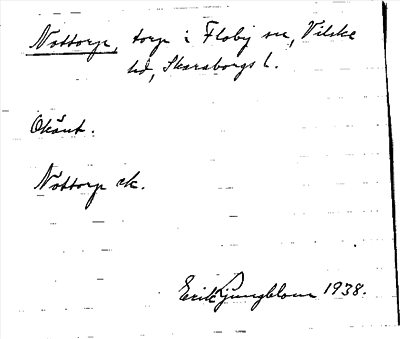 Nottorp, torp i Floby sn, Vilske
hd, Skaraborgs l.
Okänt.
Nöttorp ek.
Erik Ljungblom 1938.